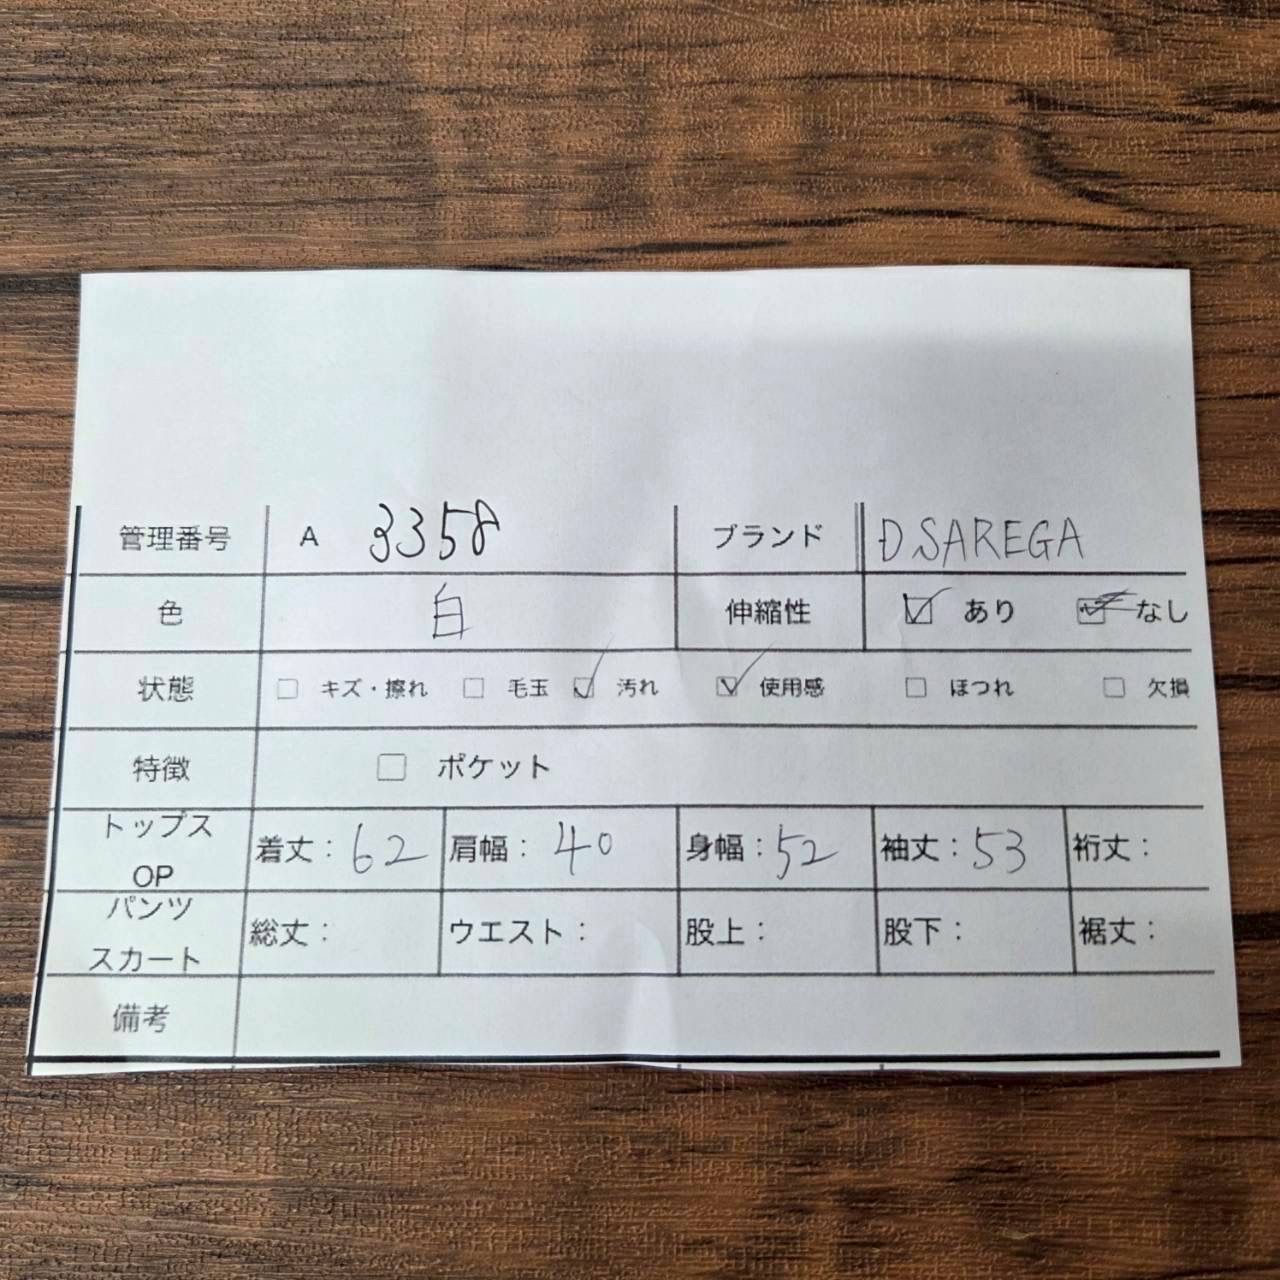 管理番号 A 3358 ブランド D SAREGA
色 白 伸縮性 あり なし
状態 キズ・擦れ 毛玉 汚れ 使用感 ほつれ 欠損
特徴 ポケット
トップス OP 着丈：62 肩幅：40 身幅：52 袖丈：53 裄丈：
パンツ スカート 総丈： ウエスト： 股上： 股下： 裾丈：
備考